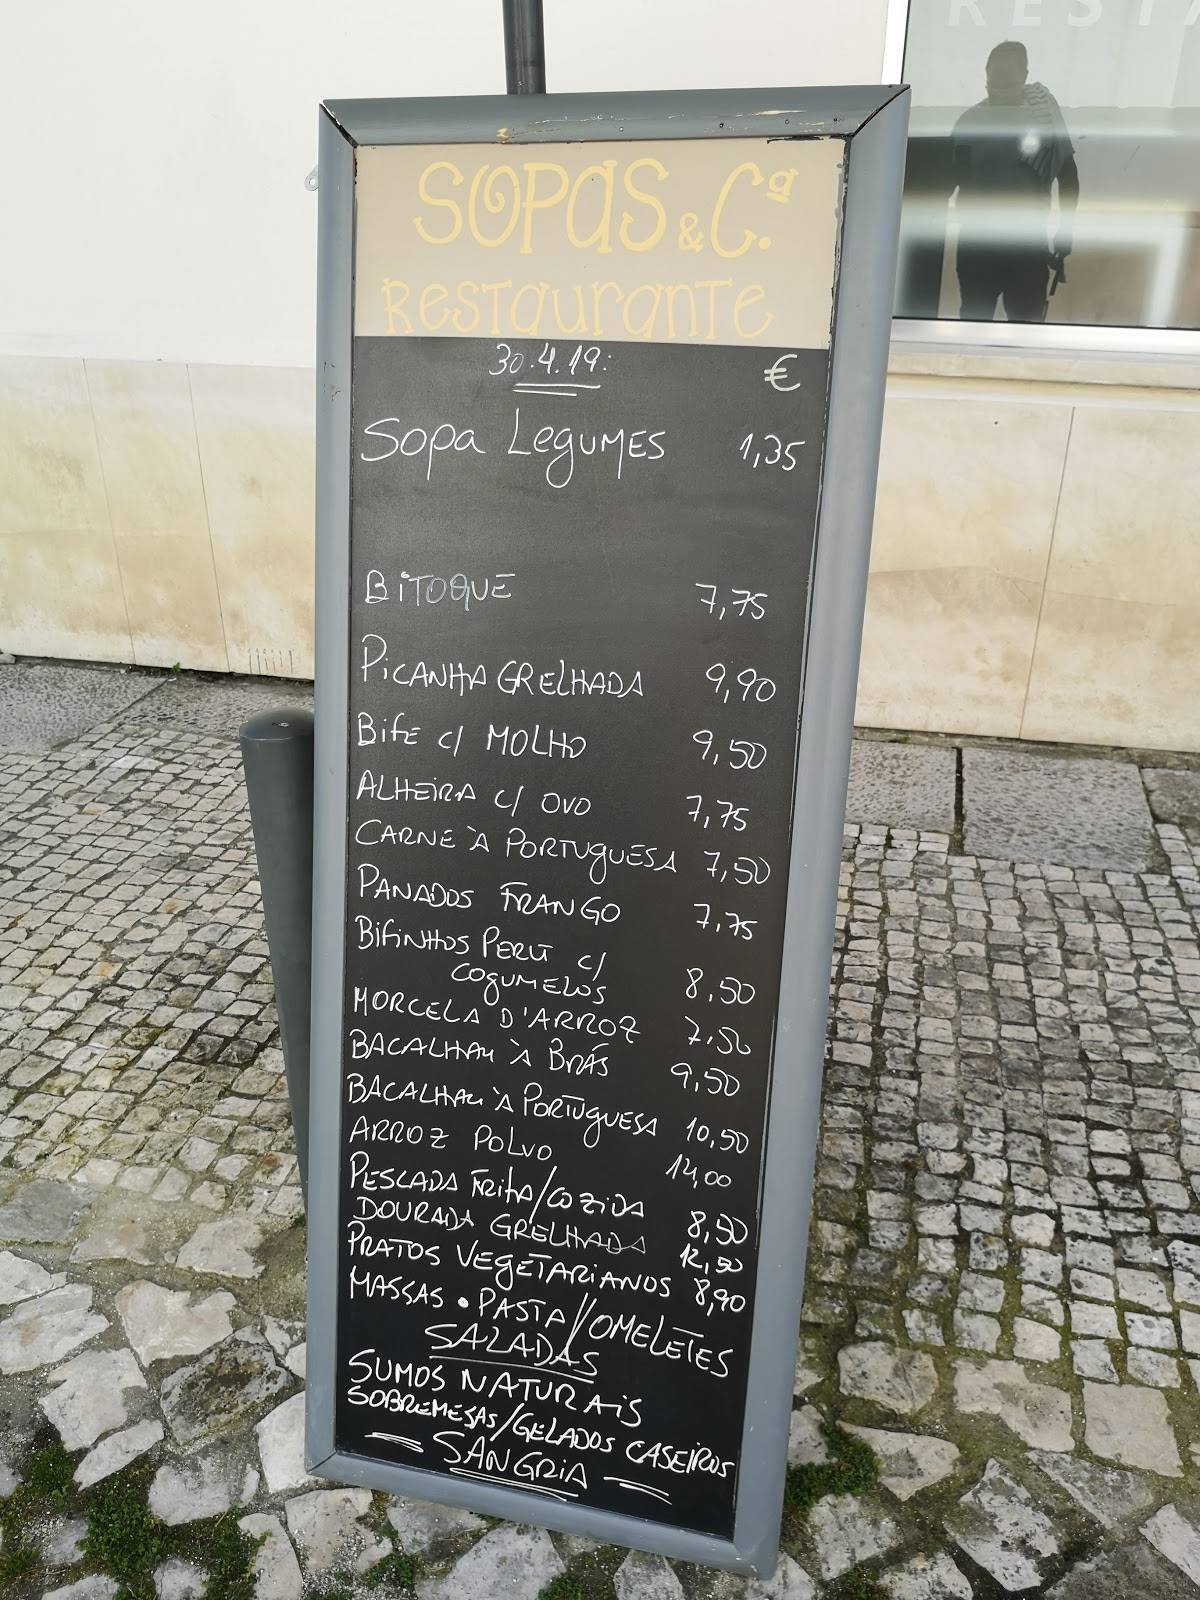 RESTA
SOPAS & C.ª
RESTAURANTE
30.4.19: €
Sopa Legumes 1,35
BITOQUE 7,75
PICANHA GRELHADA 9,90
BIFE C/ MOLHO 9,50
ALHEIRA C/ OVO 7,75
CARNE À PORTUGUESA 7,50
PANADOS FRANGO 7,75
BIFINHOS PERU C/
COGUMELOS 8,50
MORCELA D'ARROZ 7,50
BACALHAU À BRÁS 9,50
BACALHAU À PORTUGUESA 10,50
ARROZ POLVO 14,00
PESCADA FRITA/COZIDA 8,50
DOURADA GRELHADA 12,50
PRATOS VEGETARIANOS 8,90
MASSAS • PASTA//OMELETES
SALADAS
SUMOS NATURAIS
SOBREMESAS/GELADOS CASEIROS
SANGRIA